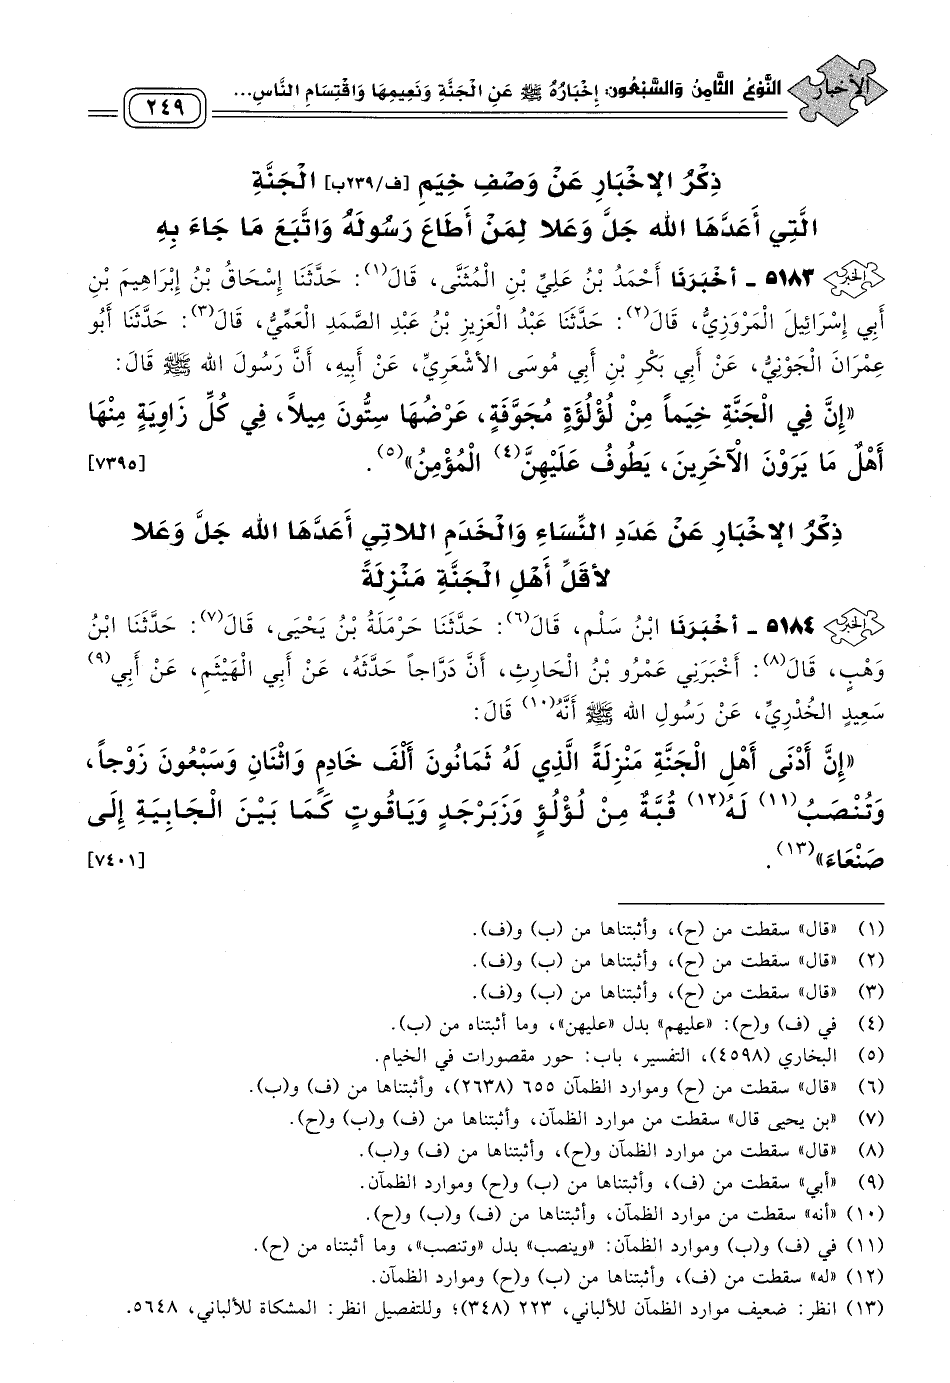 الأخبار
النَّوْعُ الثَّامِنُ وَالسَّبْعُونَ: إِخْبَارُهُ ﷺ عَنِ الْجَنَّةِ وَنَعِيمِهَا وَاقْتِسَامِ النَّاسِ...
٢٤٩
ذِكْرُ الإخْبَارِ عَنْ وَصْفِ خِيَمِ [ف/٢٣٩ب] الْجَنَّةِ
الَّتِي أَعَدَّهَا الله جَلَّ وَعَلا لِمَنْ أَطَاعَ رَسُولَهُ وَاتَّبَعَ مَا جَاءَ بِهِ
٥١٨٣ - أخْبَرَنَا أَحْمَدُ بْنُ عَلِيِّ بْنِ الْمُثَنَّى، قَالَ(١): حَدَّثَنَا إِسْحَاقُ بْنُ إِبْرَاهِيمَ بْنِ
أَبِي إِسْرَائِيلَ الْمَرْوَزِيُّ، قَالَ(٢): حَدَّثَنَا عَبْدُ الْعَزِيزِ بْنُ عَبْدِ الصَّمَدِ الْعَمِّيُّ، قَالَ(٣): حَدَّثَنَا أَبُو
عِمْرَانَ الْجَوْنِيُّ، عَنْ أَبِي بَكْرِ بْنِ أَبِي مُوسَى الأشْعَرِيِّ، عَنْ أَبِيهِ، أَنَّ رَسُولَ الله ﷺ قَالَ:
«إِنَّ فِي الْجَنَّةِ خِيَماً مِنْ لُؤْلُؤَةٍ مُجَوَّفَةٍ، عَرْضُهَا سِتُّونَ مِيلاً، فِي كُلِّ زَاوِيَةٍ مِنْهَا
أَهْلٌ مَا يَرَوْنَ الْآخَرِينَ، يَطُوفُ عَلَيْهِنَّ(٤) الْمُؤْمِنُ»(٥). [٧٣٩٥]
ذِكْرُ الإخْبَارِ عَنْ عَدَدِ النِّسَاءِ وَالْخَدَمِ اللاتِي أَعَدَّهَا الله جَلَّ وَعَلا
لأقَلِّ أَهْلِ الْجَنَّةِ مَنْزِلَةً
٥١٨٤ - أخْبَرَنَا ابْنُ سَلْمٍ، قَالَ(٦): حَدَّثَنَا حَرْمَلَةُ بْنُ يَحْيَى، قَالَ(٧): حَدَّثَنَا ابْنُ
وَهْبٍ، قَالَ(٨): أَخْبَرَنِي عَمْرُو بْنُ الْحَارِثِ، أَنَّ دَرَّاجاً حَدَّثَهُ، عَنْ أَبِي الْهَيْثَمِ، عَنْ أَبِي(٩)
سَعِيدٍ الْخُدْرِيِّ، عَنْ رَسُولِ الله ﷺ أَنَّهُ(١٠) قَالَ:
«إِنَّ أَدْنَى أَهْلِ الْجَنَّةِ مَنْزِلَةً الَّذِي لَهُ ثَمَانُونَ أَلْفَ خَادِمٍ وَاثْنَانِ وَسَبْعُونَ زَوْجاً،
وَتُنْصَبُ(١١) لَهُ(١٢) قُبَّةٌ مِنْ لُؤْلُؤٍ وَزَبَرْجَدٍ وَيَاقُوتٍ كَمَا بَيْنَ الْجَابِيَةِ إِلَى
صَنْعَاءَ»(١٣). [٧٤٠١]
(١) «قال» سقطت من (ح)، وأثبتناها من (ب) و(ف).
(٢) «قال» سقطت من (ح)، وأثبتناها من (ب) و(ف).
(٣) «قال» سقطت من (ح)، وأثبتناها من (ب) و(ف).
(٤) في (ف) و(ح): «عليهم» بدل «عليهن»، وما أثبتناه من (ب).
(٥) البخاري (٤٥٩٨)، التفسير، باب: حور مقصورات في الخيام.
(٦) «قال» سقطت من (ح) وموارد الظمآن ٦٥٥ (٢٦٣٨)، وأثبتناها من (ف) و(ب).
(٧) «بن يحيى قال» سقطت من موارد الظمآن، وأثبتناها من (ف) و(ب) و(ح).
(٨) «قال» سقطت من موارد الظمآن و(ح)، وأثبتناها من (ف) و(ب).
(٩) «أبي» سقطت من (ف)، وأثبتناها من (ب) و(ح) وموارد الظمآن.
(١٠) «أنه» سقطت من موارد الظمآن، وأثبتناها من (ف) و(ب) و(ح).
(١١) في (ف) و(ب) وموارد الظمآن: «وينصب» بدل «وتنصب»، وما أثبتناه من (ح).
(١٢) «له» سقطت من (ف)، وأثبتناها من (ب) و(ح) وموارد الظمآن.
(١٣) انظر: ضعيف موارد الظمآن للألباني، ٢٢٣ (٣٤٨)؛ وللتفصيل انظر: المشكاة للألباني، ٥٦٤٨.